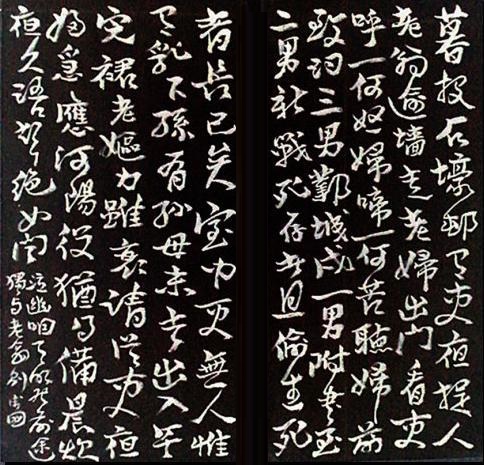 暮投石壕邨有吏夜捉人
老翁逾墙走老婦出門看吏
呼一何怒婦啼一何苦聽婦前
致词三男鄴城戍一男附書至
二男新戰死存者且偷生死
者長已矣室中更無人惟
有乳下孫有孫母未去出入无
完裙老嫗力雖衰請從吏夜
歸急應河陽役猶得備晨炊
夜久語聲絕如聞
泣幽咽天明登前途
獨与老翁别